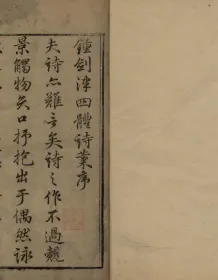 鍾劍津四體詩業序
夫詩亦難言矣詩之作不過競
景觸物矢口抒抱出于偶然詠